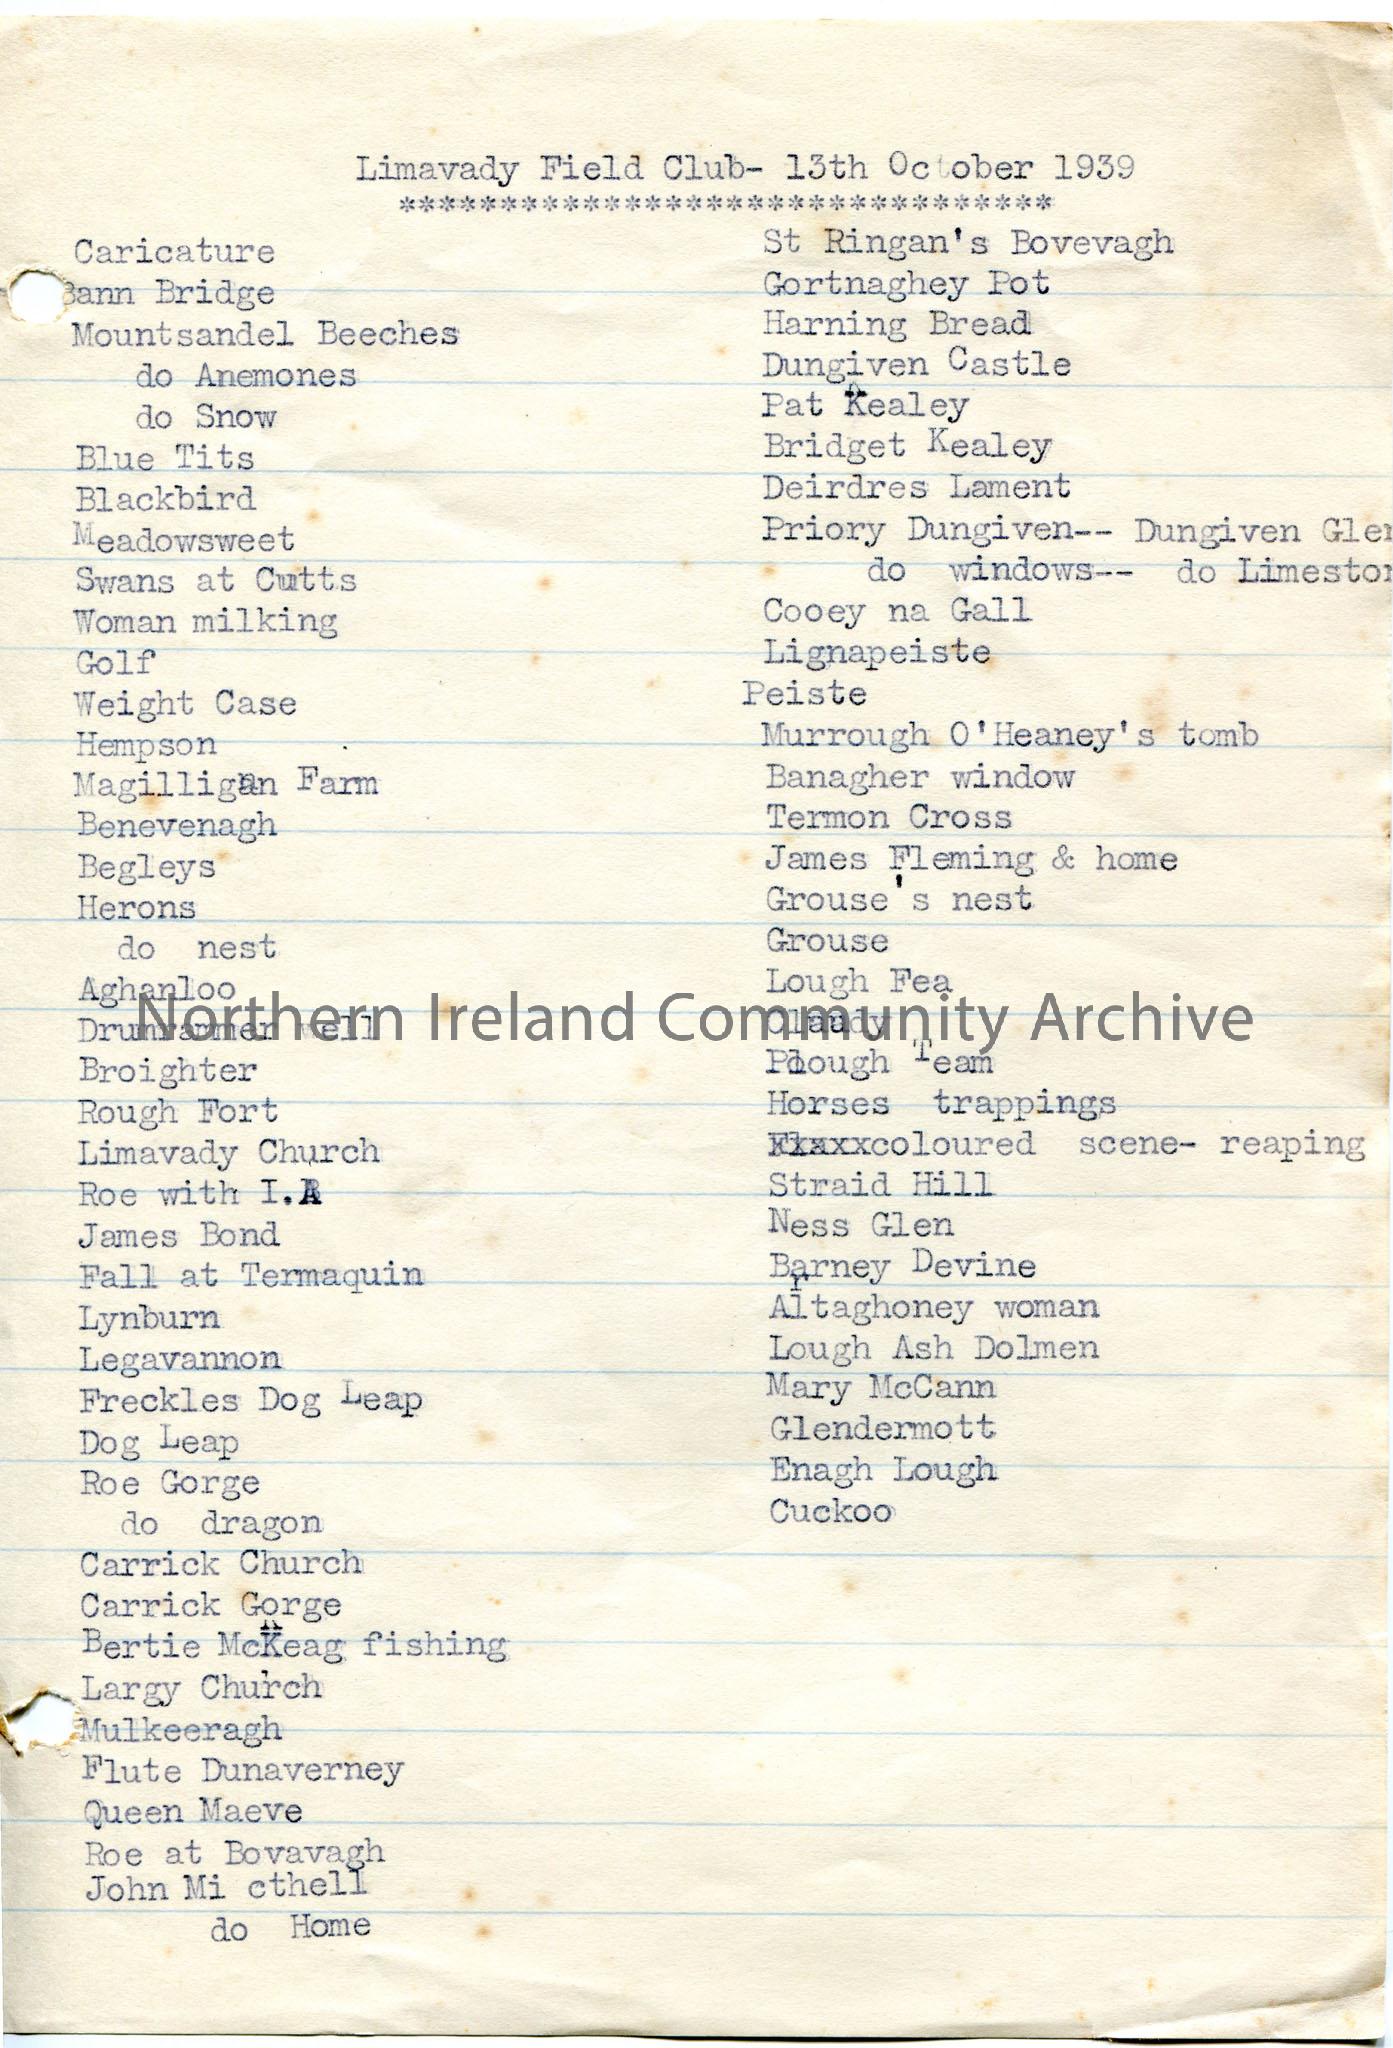 Limavady Field Club- 13th October 1939
********************************
Caricature
Bann Bridge
Mountsandel Beeches
do Anemones
do Snow
Blue Tits
Blackbird
Meadowsweet
Swans at Cutts
Woman milking
Golf
Weight Case
Hempson
Magilligan Farm
Benevenagh
Begleys
Herons
do nest
Aghanloo
Drumrammer well
Broighter
Rough Fort
Limavady Church
Roe with I.
James Bond
Fall at Termaquin
Lynburn
Legavannon
Freckles Dog Leap
Dog Leap
Roe Gorge
do dragon
Carrick Church
Carrick Gorge
Bertie McKeag fishing
Largy Church
Mulkeeragh
Flute Dunaverney
Queen Maeve
Roe at Bovavagh
John Mi cthell
do Home
St Ringan's Bovevagh
Gortnaghey Pot
Harning Bread
Dungiven Castle
Pat Kealey
Bridget Kealey
Deirdres Lament
Priory Dungiven-- Dungiven Glen
do windows-- do Limeston
Cooey na Gall
Lignapeiste
Peiste
Murrough O'Heaney's tomb
Banagher window
Termon Cross
James Fleming & home
Grouse's nest
Grouse
Lough Fea
Claudy
Plough Team
Horses trappings
coloured scene- reaping
Straid Hill
Ness Glen
Barney Devine
Altaghoney woman
Lough Ash Dolmen
Mary McCann
Glendermott
Enagh Lough
Cuckoo
Northern Ireland Community Archive